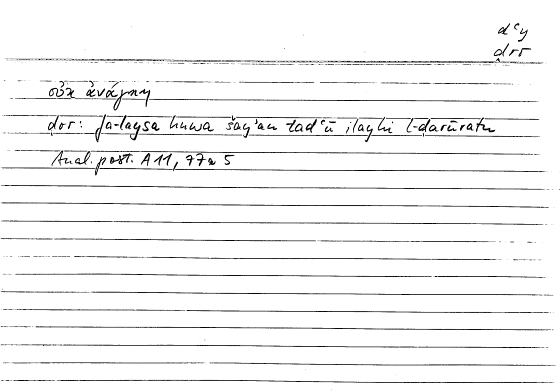 dʿy
ḍrr
οὐκ ἀνάγκη
ḍor: fa-laysa huwa šayʾan tadʿū ilayhi l-ḍarūratu
Anal. post. A 11, 77a 5